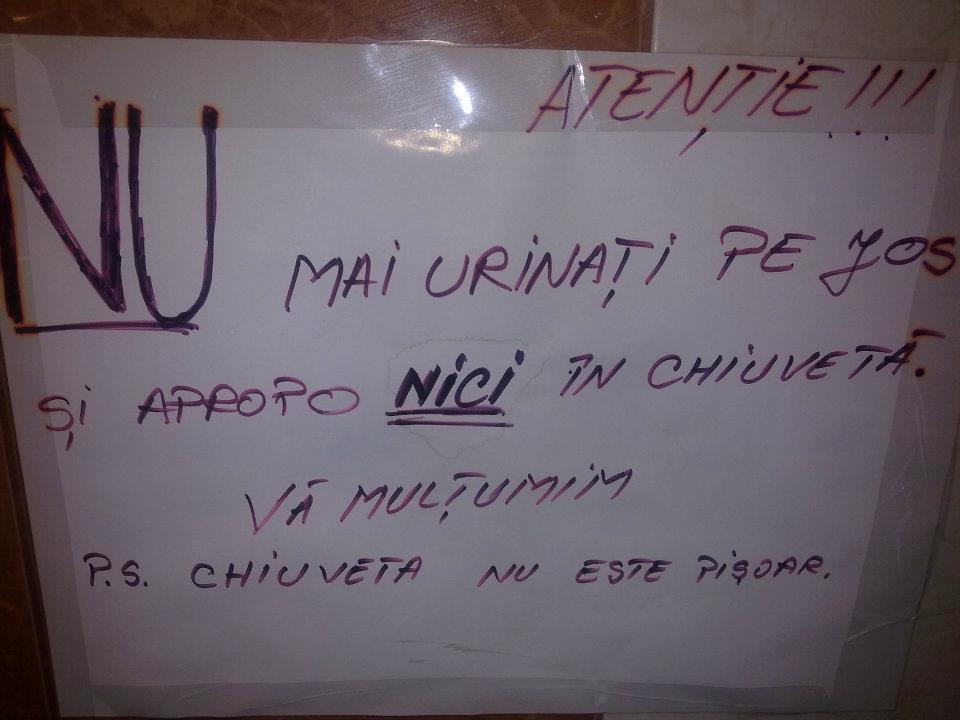 ATENȚIE !!!
NU MAI URINAȚI PE JOS
ȘI APROPO NICI ÎN CHIUVETĂ.
VĂ MULȚUMIM
P.S. CHIUVETA NU ESTE PIȘOAR.